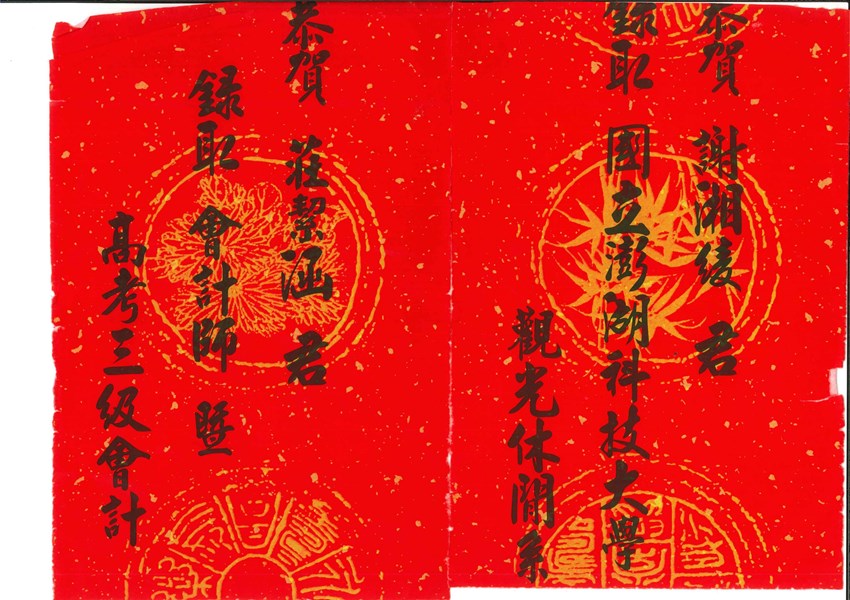 恭賀 謝湘綾 君
錄取 國立澎湖科技大學
觀光休閒系
恭賀 莊絜涵 君
錄取 會計師 暨
高考三級會計